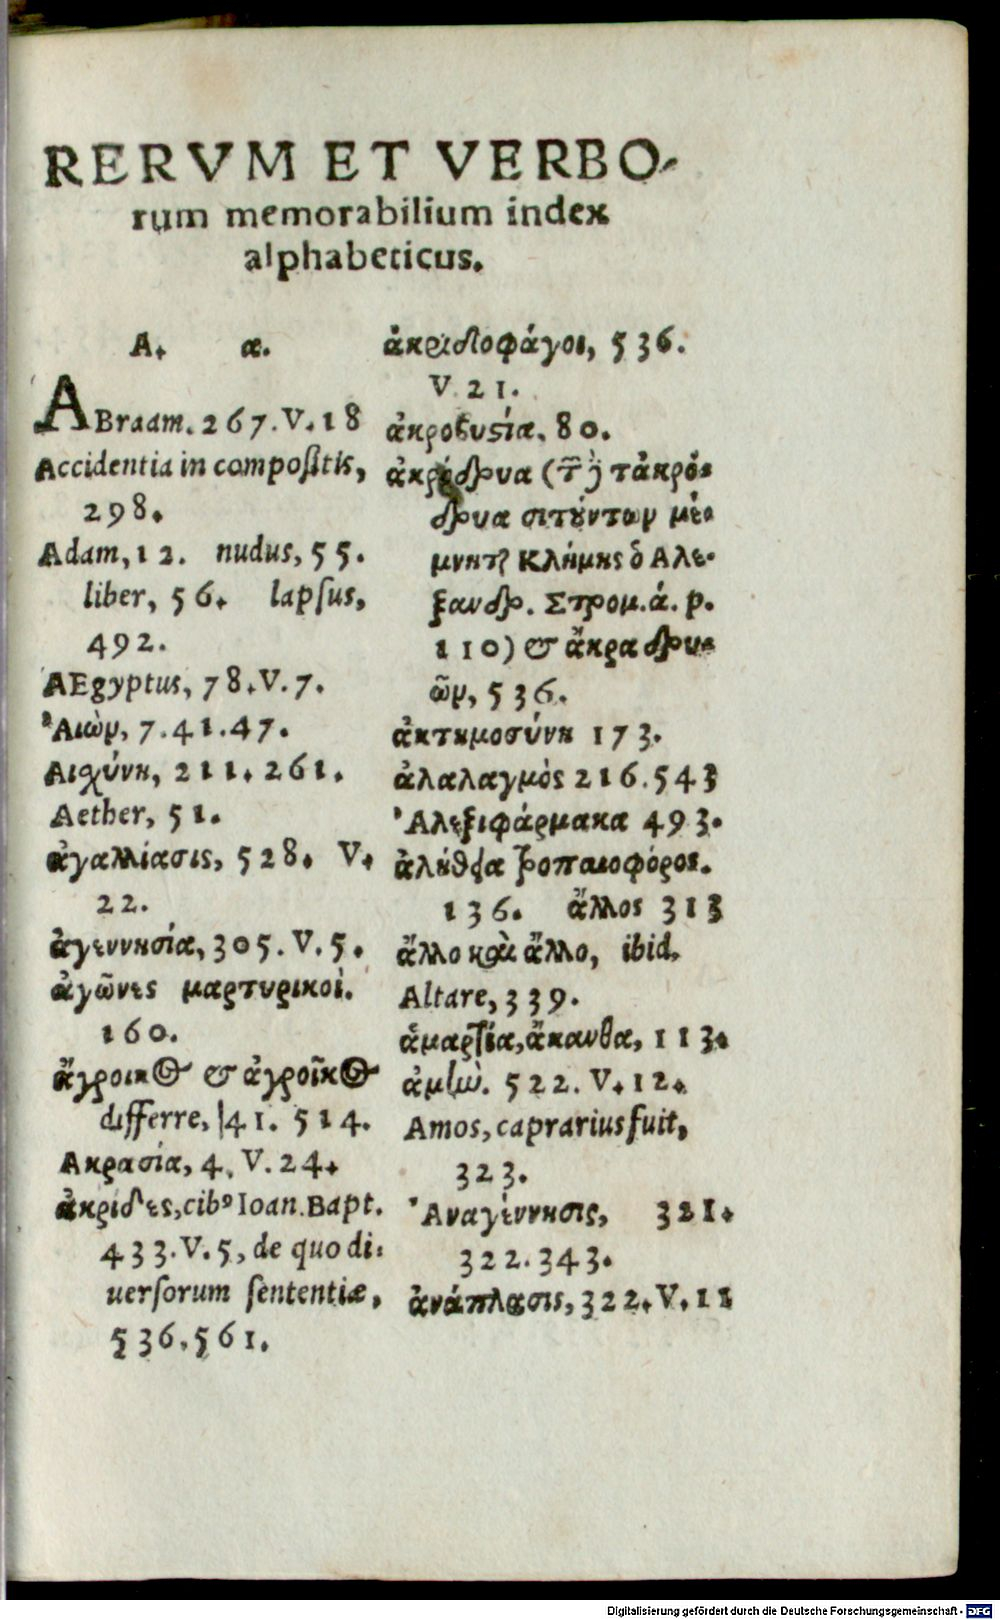 RERVM ET VERBO-
rum memorabilium index
alphabeticus.
A. α.
ABraam. 267. V. 18
Accidentia in compoſitis,
298.
Adam, 12. nudus, 55.
liber, 56. lapſus,
492.
AEgyptus, 78. V. 7.
Ἀιὼν, 7. 41. 47.
Αιχύνη, 211. 261.
Aether, 51.
ἀγαλλίασις, 528. V.
22.
ἀγεννησία, 305. V. 5.
ἀγῶνες μαρτυρικοὶ.
160.
ἄγροικος & ἀγροῖκος
differre, 41. 514.
Ακρασία, 4. V. 24.
ἀκρίδες, cibꝰ Ioan. Bapt.
433. V. 5, de quo di-
uerſorum ſententiæ,
536. 561.
ἀκριδοφάγοι, 536.
V. 21.
ἀκροβυστία. 80.
ἀκρόδρυα ( τἀκρό-
δρυα σιτούντων μέ-
μνηται Κλήμης ὁ Αλε-
ξανδρ. Στρομ. ά. p.
110) & ἄκρα δρυ-
ῶν, 536.
ἀκτημοσύνη 173.
ἀλαλαγμὸς 216. 543
Ἀλεξιφάρμακα 493.
ἀλήθεια τροπαιοφόρος.
136. ἄλλος 313
ἄλλο καὶ ἄλλο, ibid.
Altare, 339.
ἁμαρτία, ἄκανθα, 113.
522. V. 12.
Amos, caprarius fuit,
323.
Ἀναγέννησις, 321.
322. 343.
ἀνάπλασις, 322. V. 11
Digitalisierung gefördert durch die Deutsche Forschungsgemeinschaft - DFG